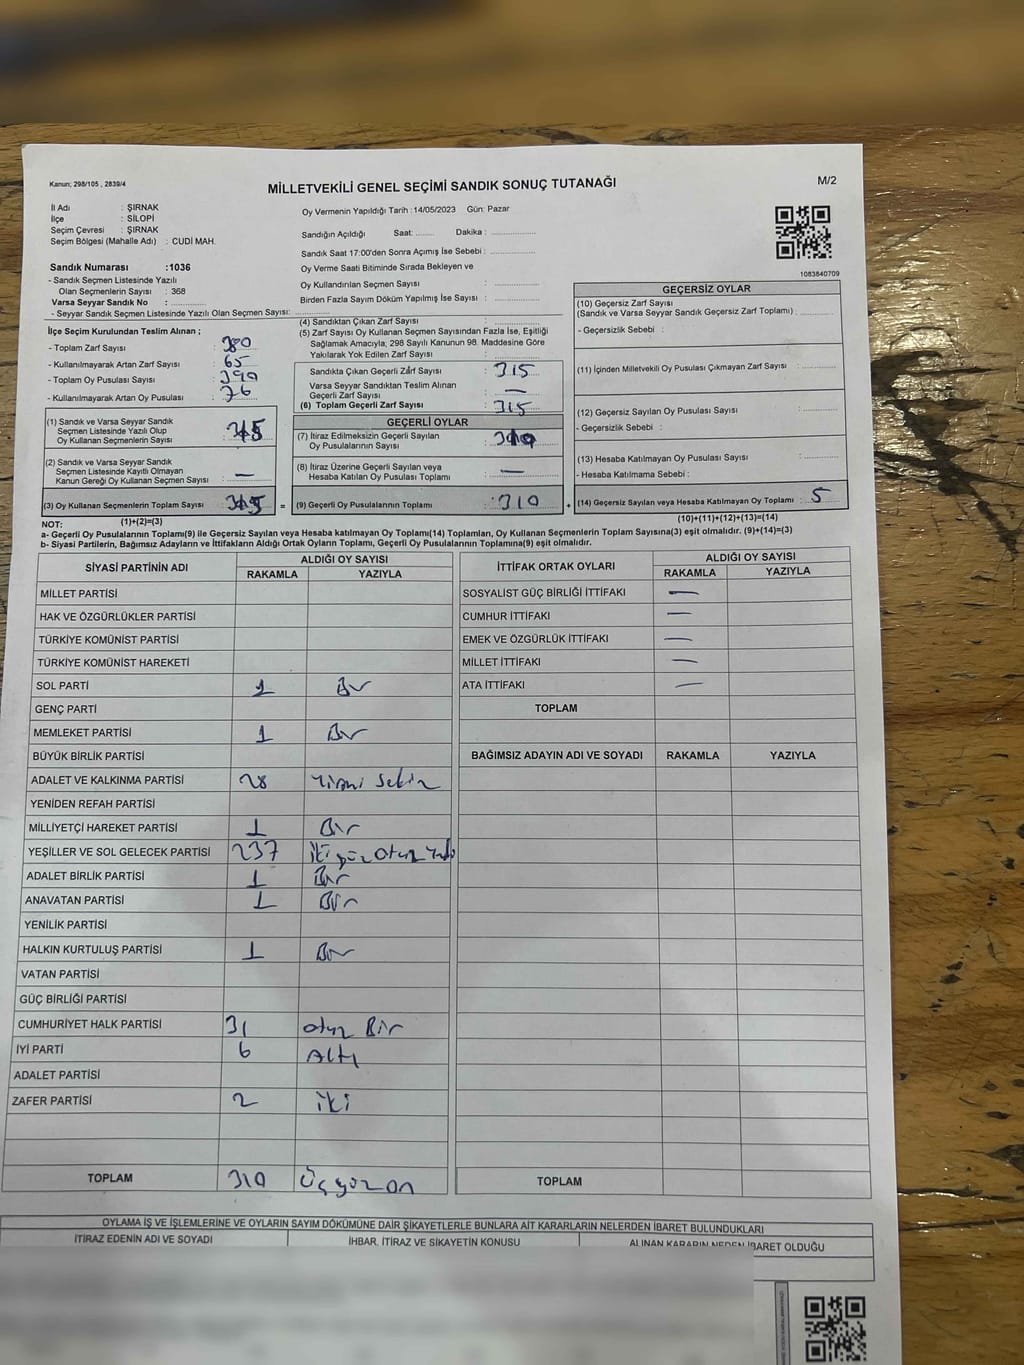 Kanun; 298/105 , 2839/4
MİLLETVEKİLİ GENEL SEÇİMİ SANDIK SONUÇ TUTANAĞI
M/2
İl Adı : ŞIRNAK
İlçe : SİLOPİ
Seçim Çevresi : ŞIRNAK
Seçim Bölgesi (Mahalle Adı) : CUDİ MAH.
Sandık Numarası :1036
- Sandık Seçmen Listesinde Yazılı
Olan Seçmenlerin Sayısı : 368
Varsa Seyyar Sandık No :
- Seyyar Sandık Seçmen Listesinde Yazılı Olan Seçmen Sayısı:
Oy Vermenin Yapıldığı Tarih :14/05/2023 Gün: Pazar
Sandığın Açıldığı Saat: Dakika :
Sandık Saat 17:00'den Sonra Açımış İse Sebebi :
Oy Verme Saati Bitiminde Sırada Bekleyen ve
Oy Kullandırılan Seçmen Sayısı :
Birden Fazla Sayım Döküm Yapılmış İse Sayısı :
1083840709
İlçe Seçim Kurulundan Teslim Alınan ;
- Toplam Zarf Sayısı : 380
- Kullanılmayarak Artan Zarf Sayısı : 65
- Toplam Oy Pusulası Sayısı :
- Kullanılmayarak Artan Oy Pusulası : 76
(1) Sandık ve Varsa Seyyar Sandık
Seçmen Listesinde Yazılı Olup
Oy Kullanan Seçmenlerin Sayısı :
(2) Sandık ve Varsa Seyyar Sandık
Seçmen Listesinde Kayıtlı Olmayan
Kanun Gereği Oy Kullanan Seçmen Sayısı : —
(3) Oy Kullanan Seçmenlerin Toplam Sayısı :
(4) Sandıktan Çıkan Zarf Sayısı :
(5) Zarf Sayısı Oy Kullanan Seçmen Sayısından Fazla İse, Eşitliği
Sağlamak Amacıyla, 298 Sayılı Kanunun 98. Maddesine Göre
Yakılarak Yok Edilen Zarf Sayısı :
Sandıkta Çıkan Geçerli Zarf Sayısı : 315
Varsa Seyyar Sandıktan Teslim Alınan
Geçerli Zarf Sayısı : —
(6) Toplam Geçerli Zarf Sayısı : 315
GEÇERLİ OYLAR
(7) İtiraz Edilmeksizin Geçerli Sayılan
Oy Pusulalarının Sayısı :
(8) İtiraz Üzerine Geçerli Sayılan veya
Hesaba Katılan Oy Pusulaları Toplamı : —
= (9) Geçerli Oy Pusulalarının Toplamı : 310
GEÇERSİZ OYLAR
(10) Geçersiz Zarf Sayısı
(Sandık ve Varsa Seyyar Sandık Geçersiz Zarf Toplamı) :
- Geçersizlik Sebebi :
(11) İçinden Milletvekili Oy Pusulası Çıkmayan Zarf Sayısı :
(12) Geçersiz Sayılan Oy Pusulası Sayısı :
- Geçersizlik Sebebi :
(13) Hesaba Katılmayan Oy Pusulası Sayısı :
- Hesaba Katılmama Sebebi :
+ (14) Geçersiz Sayılan veya Hesaba Katılmayan Oy Toplamı : 5
NOT: (1)+(2)=(3) (10)+(11)+(12)+(13)=(14)
a- Geçerli Oy Pusulalarının Toplamı(9) ile Geçersiz Sayılan veya Hesaba katılmayan Oy Toplamı(14) Toplamları, Oy Kullanan Seçmenlerin Toplam Sayısına(3) eşit olmalıdır. (9)+(14)=(3)
b- Siyasi Partilerin, Bağımsız Adayların ve İttifakların Aldığı Ortak Oyların Toplamı, Geçerli Oy Pusulalarının Toplamına(9) eşit olmalıdır.
SİYASİ PARTİNİN ADI ALDIĞI OY SAYISI
RAKAMLA YAZIYLA
MİLLET PARTİSİ
HAK VE ÖZGÜRLÜKLER PARTİSİ
TÜRKİYE KOMÜNİST PARTİSİ
TÜRKİYE KOMÜNİST HAREKETİ
SOL PARTİ 1 Bir
GENÇ PARTİ
MEMLEKET PARTİSİ 1 Bir
BÜYÜK BİRLİK PARTİSİ
ADALET VE KALKINMA PARTİSİ 28 Yirmi Sekiz
YENİDEN REFAH PARTİSİ
MİLLİYETÇİ HAREKET PARTİSİ 1 Bir
YEŞİLLER VE SOL GELECEK PARTİSİ 237 iki yüz otuz Yedi
ADALET BİRLİK PARTİSİ 1 Bir
ANAVATAN PARTİSİ 1 Bir
YENİLİK PARTİSİ
HALKIN KURTULUŞ PARTİSİ 1 Bir
VATAN PARTİSİ
GÜÇ BİRLİĞİ PARTİSİ
CUMHURİYET HALK PARTİSİ 31 otuz Bir
İYİ PARTİ 6 Altı
ADALET PARTİSİ
ZAFER PARTİSİ 2 iki
TOPLAM 310 Üçyüz on
İTTİFAK ORTAK OYLARI ALDIĞI OY SAYISI
RAKAMLA YAZIYLA
SOSYALIST GÜÇ BİRLİĞİ İTTİFAKI —
CUMHUR İTTİFAKI —
EMEK VE ÖZGÜRLÜK İTTİFAKI —
MİLLET İTTİFAKI —
ATA İTTİFAKI —
TOPLAM
BAĞIMSIZ ADAYIN ADI VE SOYADI RAKAMLA YAZIYLA
TOPLAM
OYLAMA İŞ VE İŞLEMLERİNE VE OYLARIN SAYIM DÖKÜMÜNE DAİR ŞİKAYETLERLE BUNLARA AİT KARARLARIN NELERDEN İBARET BULUNDUKLARI
İTİRAZ EDENİN ADI VE SOYADI İHBAR, İTİRAZ VE SIKAYETİN KONUSU ALINAN KARARIN NEDEN İBARET OLDUĞU